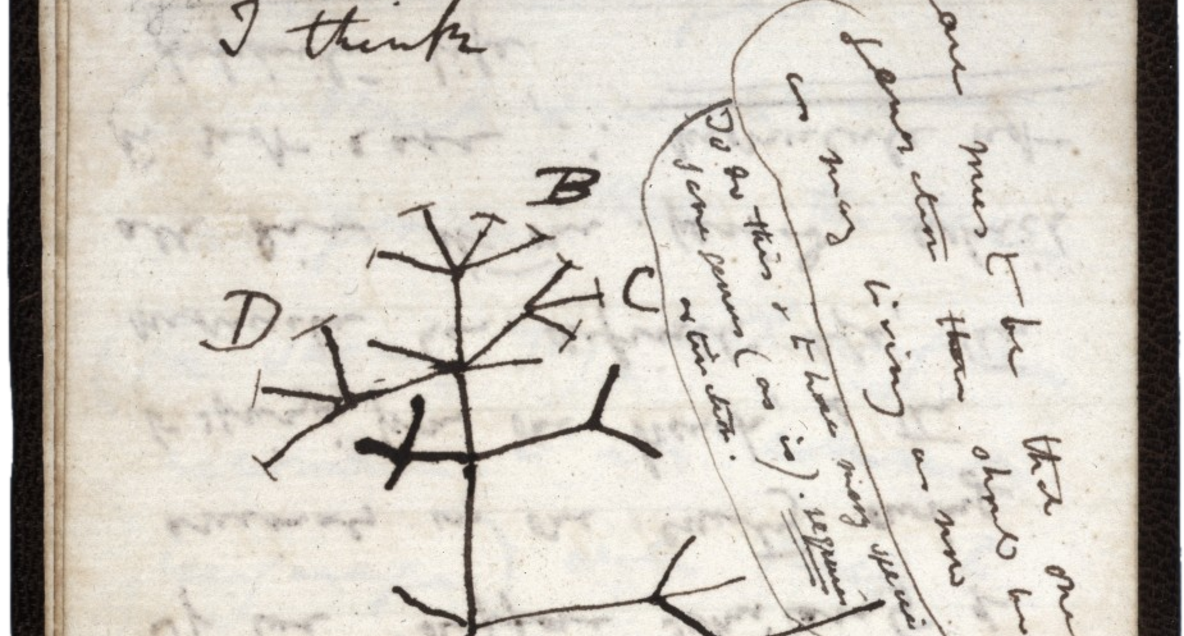 I think
B
D
C
must be that one
generation then should be
as many living as now
To do this & to have many species
in same genus (as is). requires
extinction.